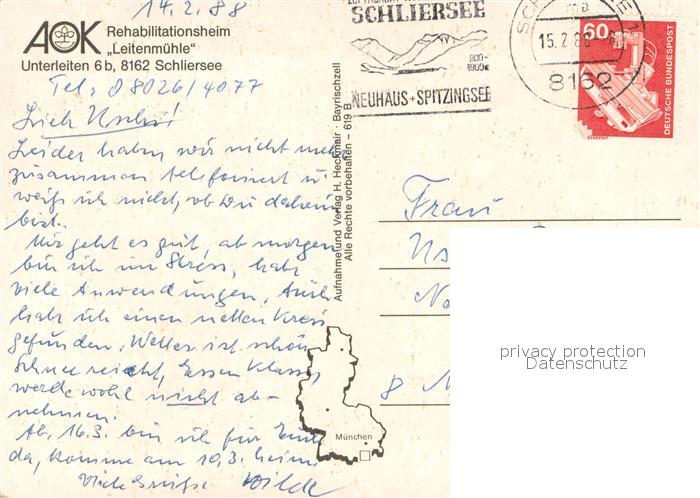 14.2.88
AOK
Rehabilitationsheim
„Leitenmühle"
Unterleiten 6b, 8162 Schliersee
Tel: 08026/4077
SCHLIERSEE
800-
1900m
NEUHAUS+SPITZINGSEE
15.2.88
8162
60
DEUTSCHE BUNDESPOST
Uschi!
Leider haben wir nicht mehr
zusammen telefoniert u.
weiß ich nicht, ob Du daheim
bist.
Mir geht es gut, ab morgen
bin ich im Stress, habe
viele Anwendungen, Auch
hab ich einen netten Kreis
gefunden. Wetter ist schön
Schnee reicht, Essen Klasse,
werde wohl nicht ab-
nehmen.
Ab 16.3. bin ich für Euch
da, komme am 10.3. heim.
Viele Grüße
Aufnahme und Verlag H. Heckmair - Bayrischzell
Alle Rechte vorbehalten - 619 B
München
Frau
8
privacy protection
Datenschutz